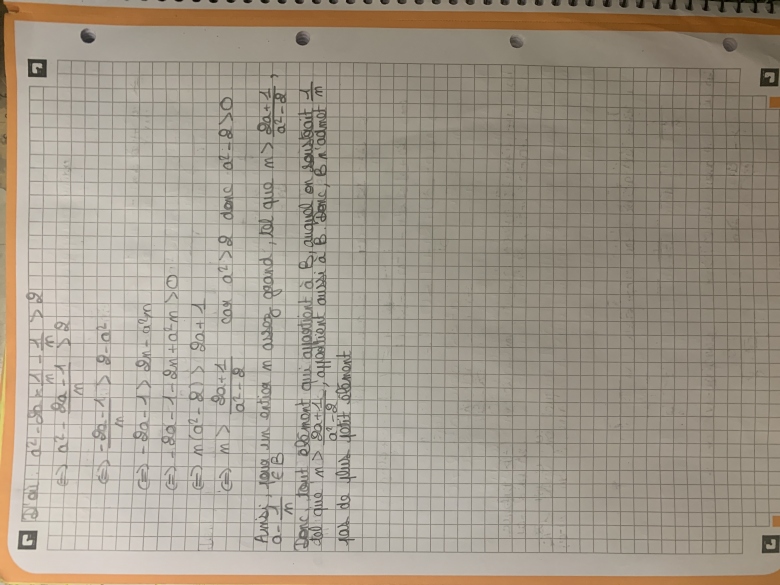 D'où : a² - 2a × 1/n - 1/n > 2
(=) a² - 2a - 1/n > 2
(=) - 2a - 1/n > 2 - a²
(=) - 2a - 1 > 2n - a²n
(=) - 2a - 1 - 2n + a²n > 0
(=) n(a² - 2) > 2a + 1
(=) n > 2a + 1/a² - 2 car a² > 2 donc a² - 2 > 0
Ainsi, pour un entier n assez grand, tel que n > 2a + 1/a² - 2,
a - 1/n ∈ B
Donc, tout élément qui appartient à B, auquel on soustrait 1/n
tel que n > 2a + 1/a² - 2, appartient aussi à B. Donc, B n'admet
pas de plus petit élément